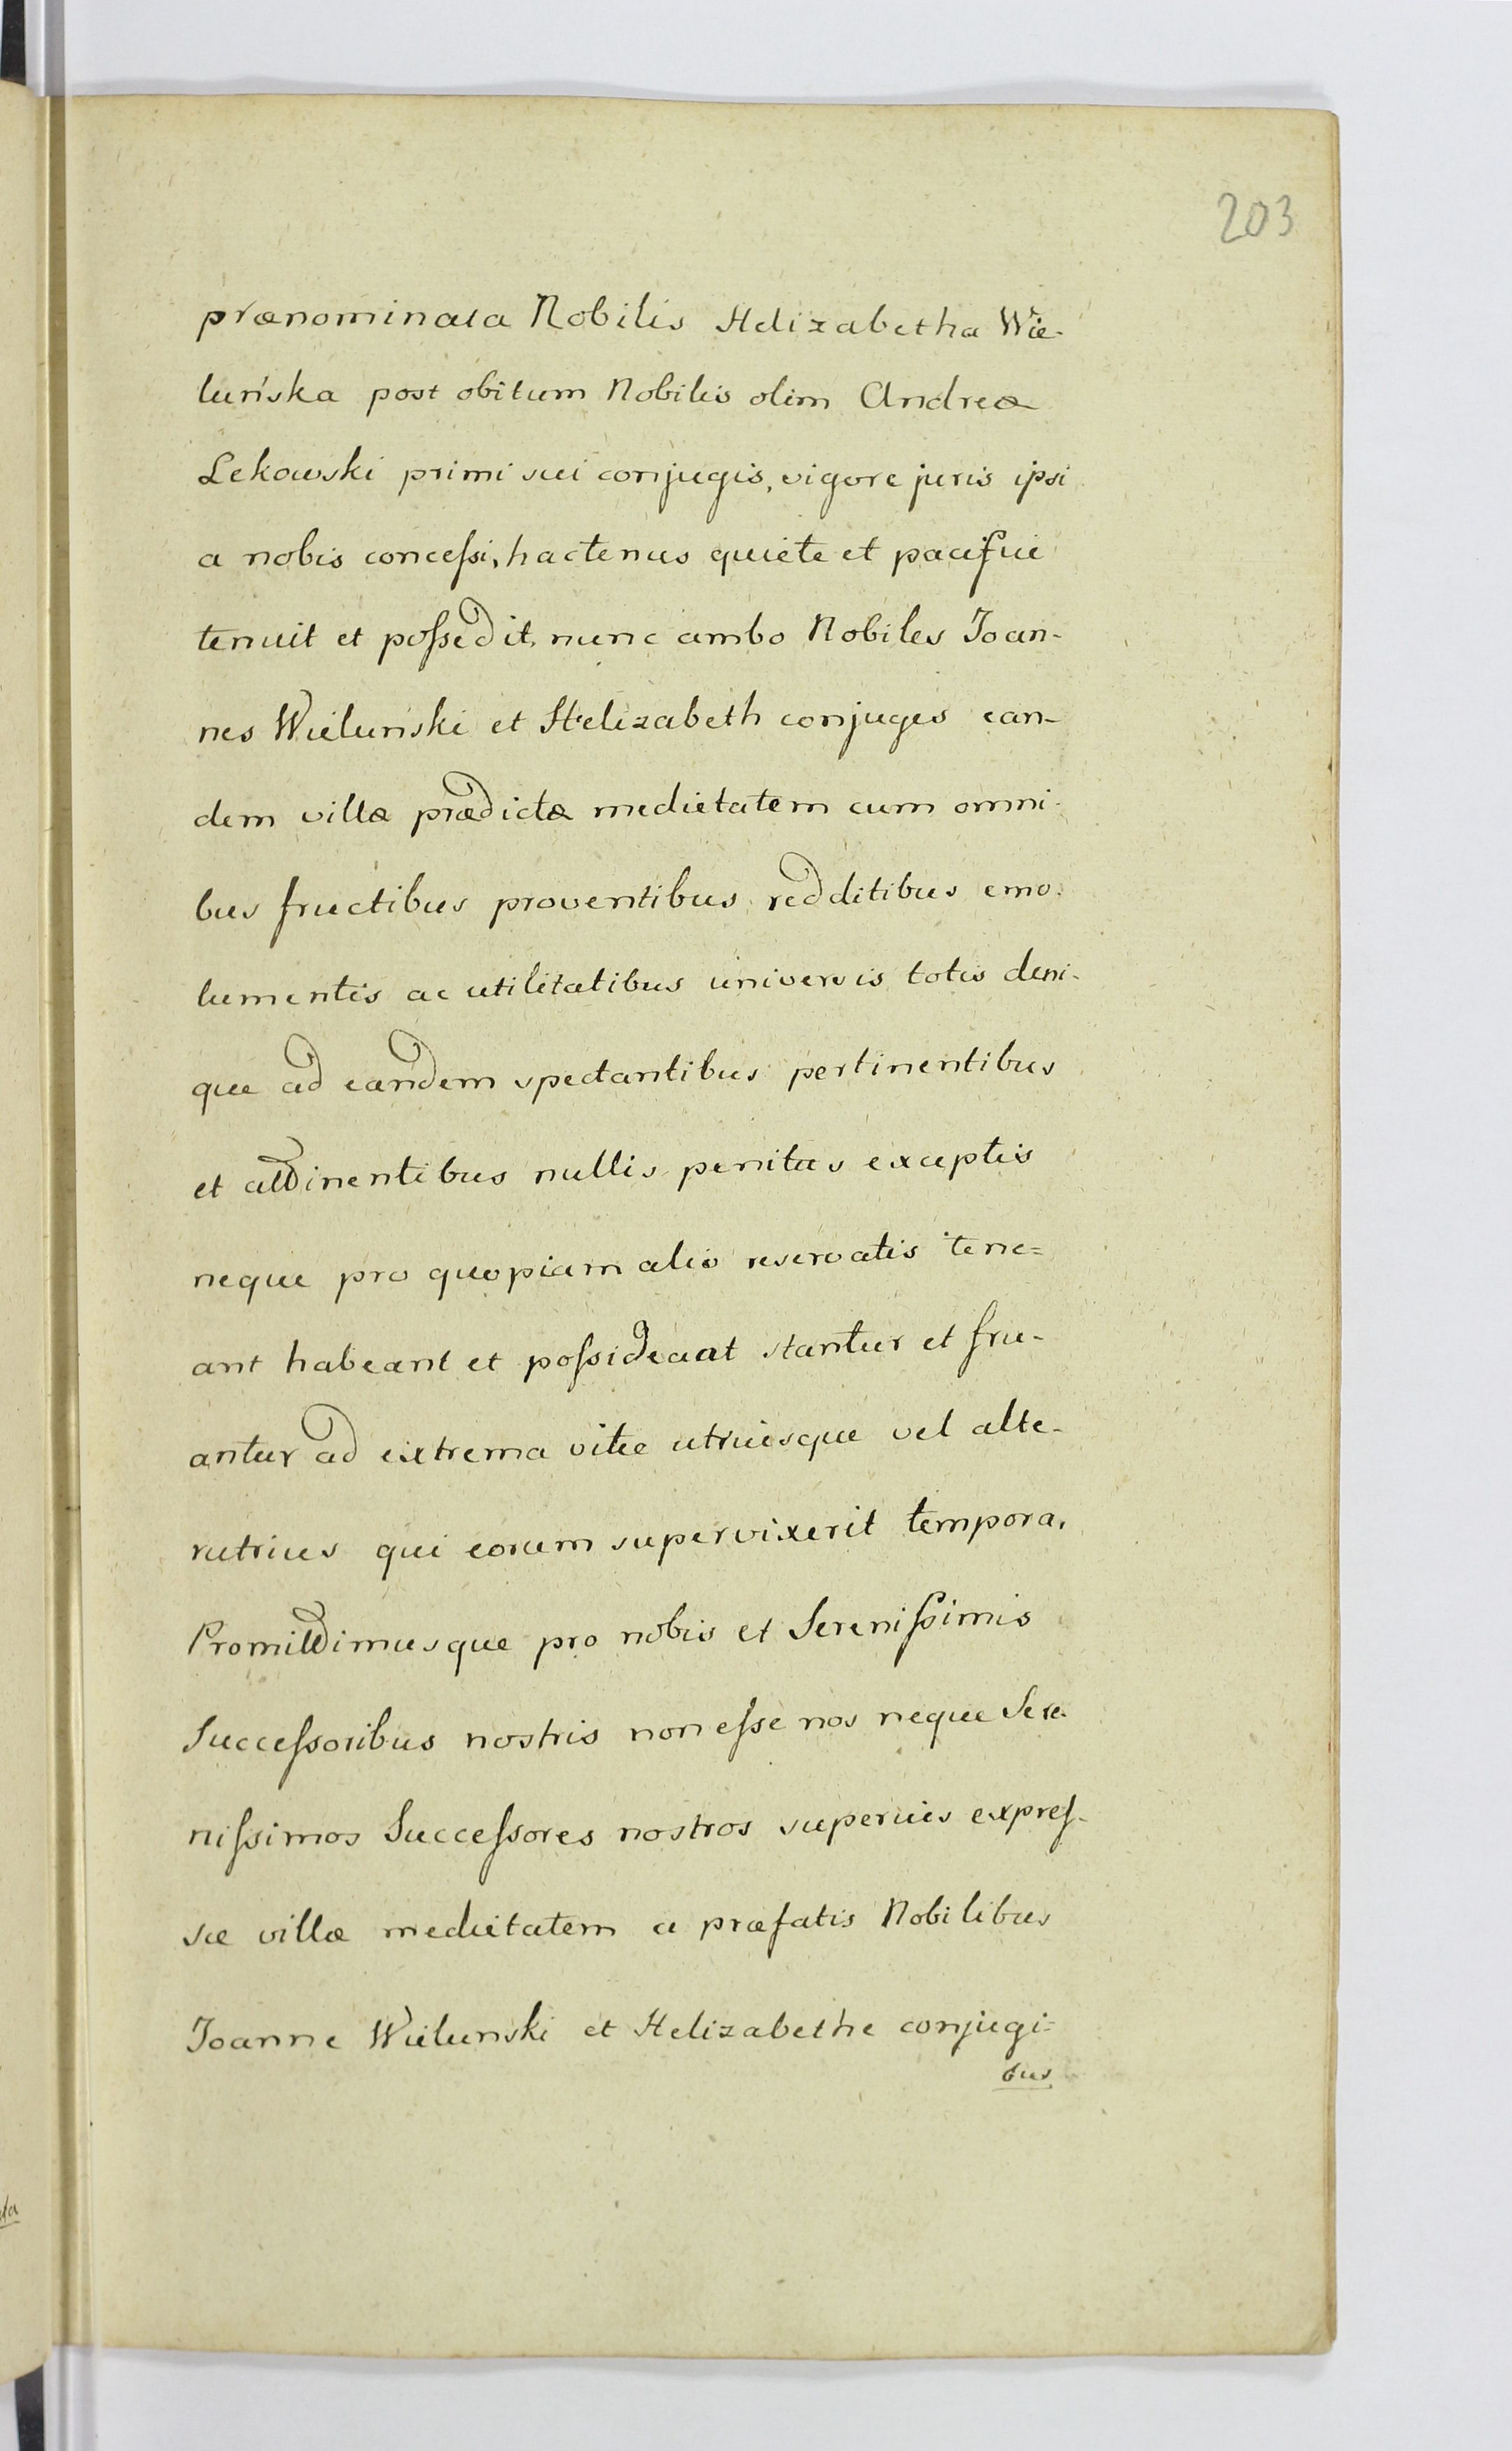 203
prænominata Nobilis Helizabetha Wie-
luńska post obitum Nobilis olim Andreæ
Lekowski primi sui conjugis, vigore juris ipsi
a nobis conceſsi, hactenus quiete et pacifice
tenuit et poſsedit, nunc ambo Nobiles Joan-
nes Wieluński et Helizabeth conjuges ean-
dem villæ prædictæ medietatem cum omni-
bus fructibus proventibus redditibus emo-
lumentis ac utilitatibus universis totis deni-
que ad eandem spectantibus pertinentibus
et attinentibus nullis penitus exceptis
neque pro quopiam alio reservatis tene=
ant habeant et poſsideaat utantur et fru-
antur ad extrema vitæ utriusque vel alte-
rutrius qui eorum supervixerit tempora,
Promittimusque pro nobis et Sereniſsimis
Succeſsoribus nostris non eſse nos neque Sere-
niſsimos Succeſsores nostros superius expreſ-
sæ villæ medietatem a præfatis Nobilibus
Joanne Wielunski et Helizabethe conjugi=
bus